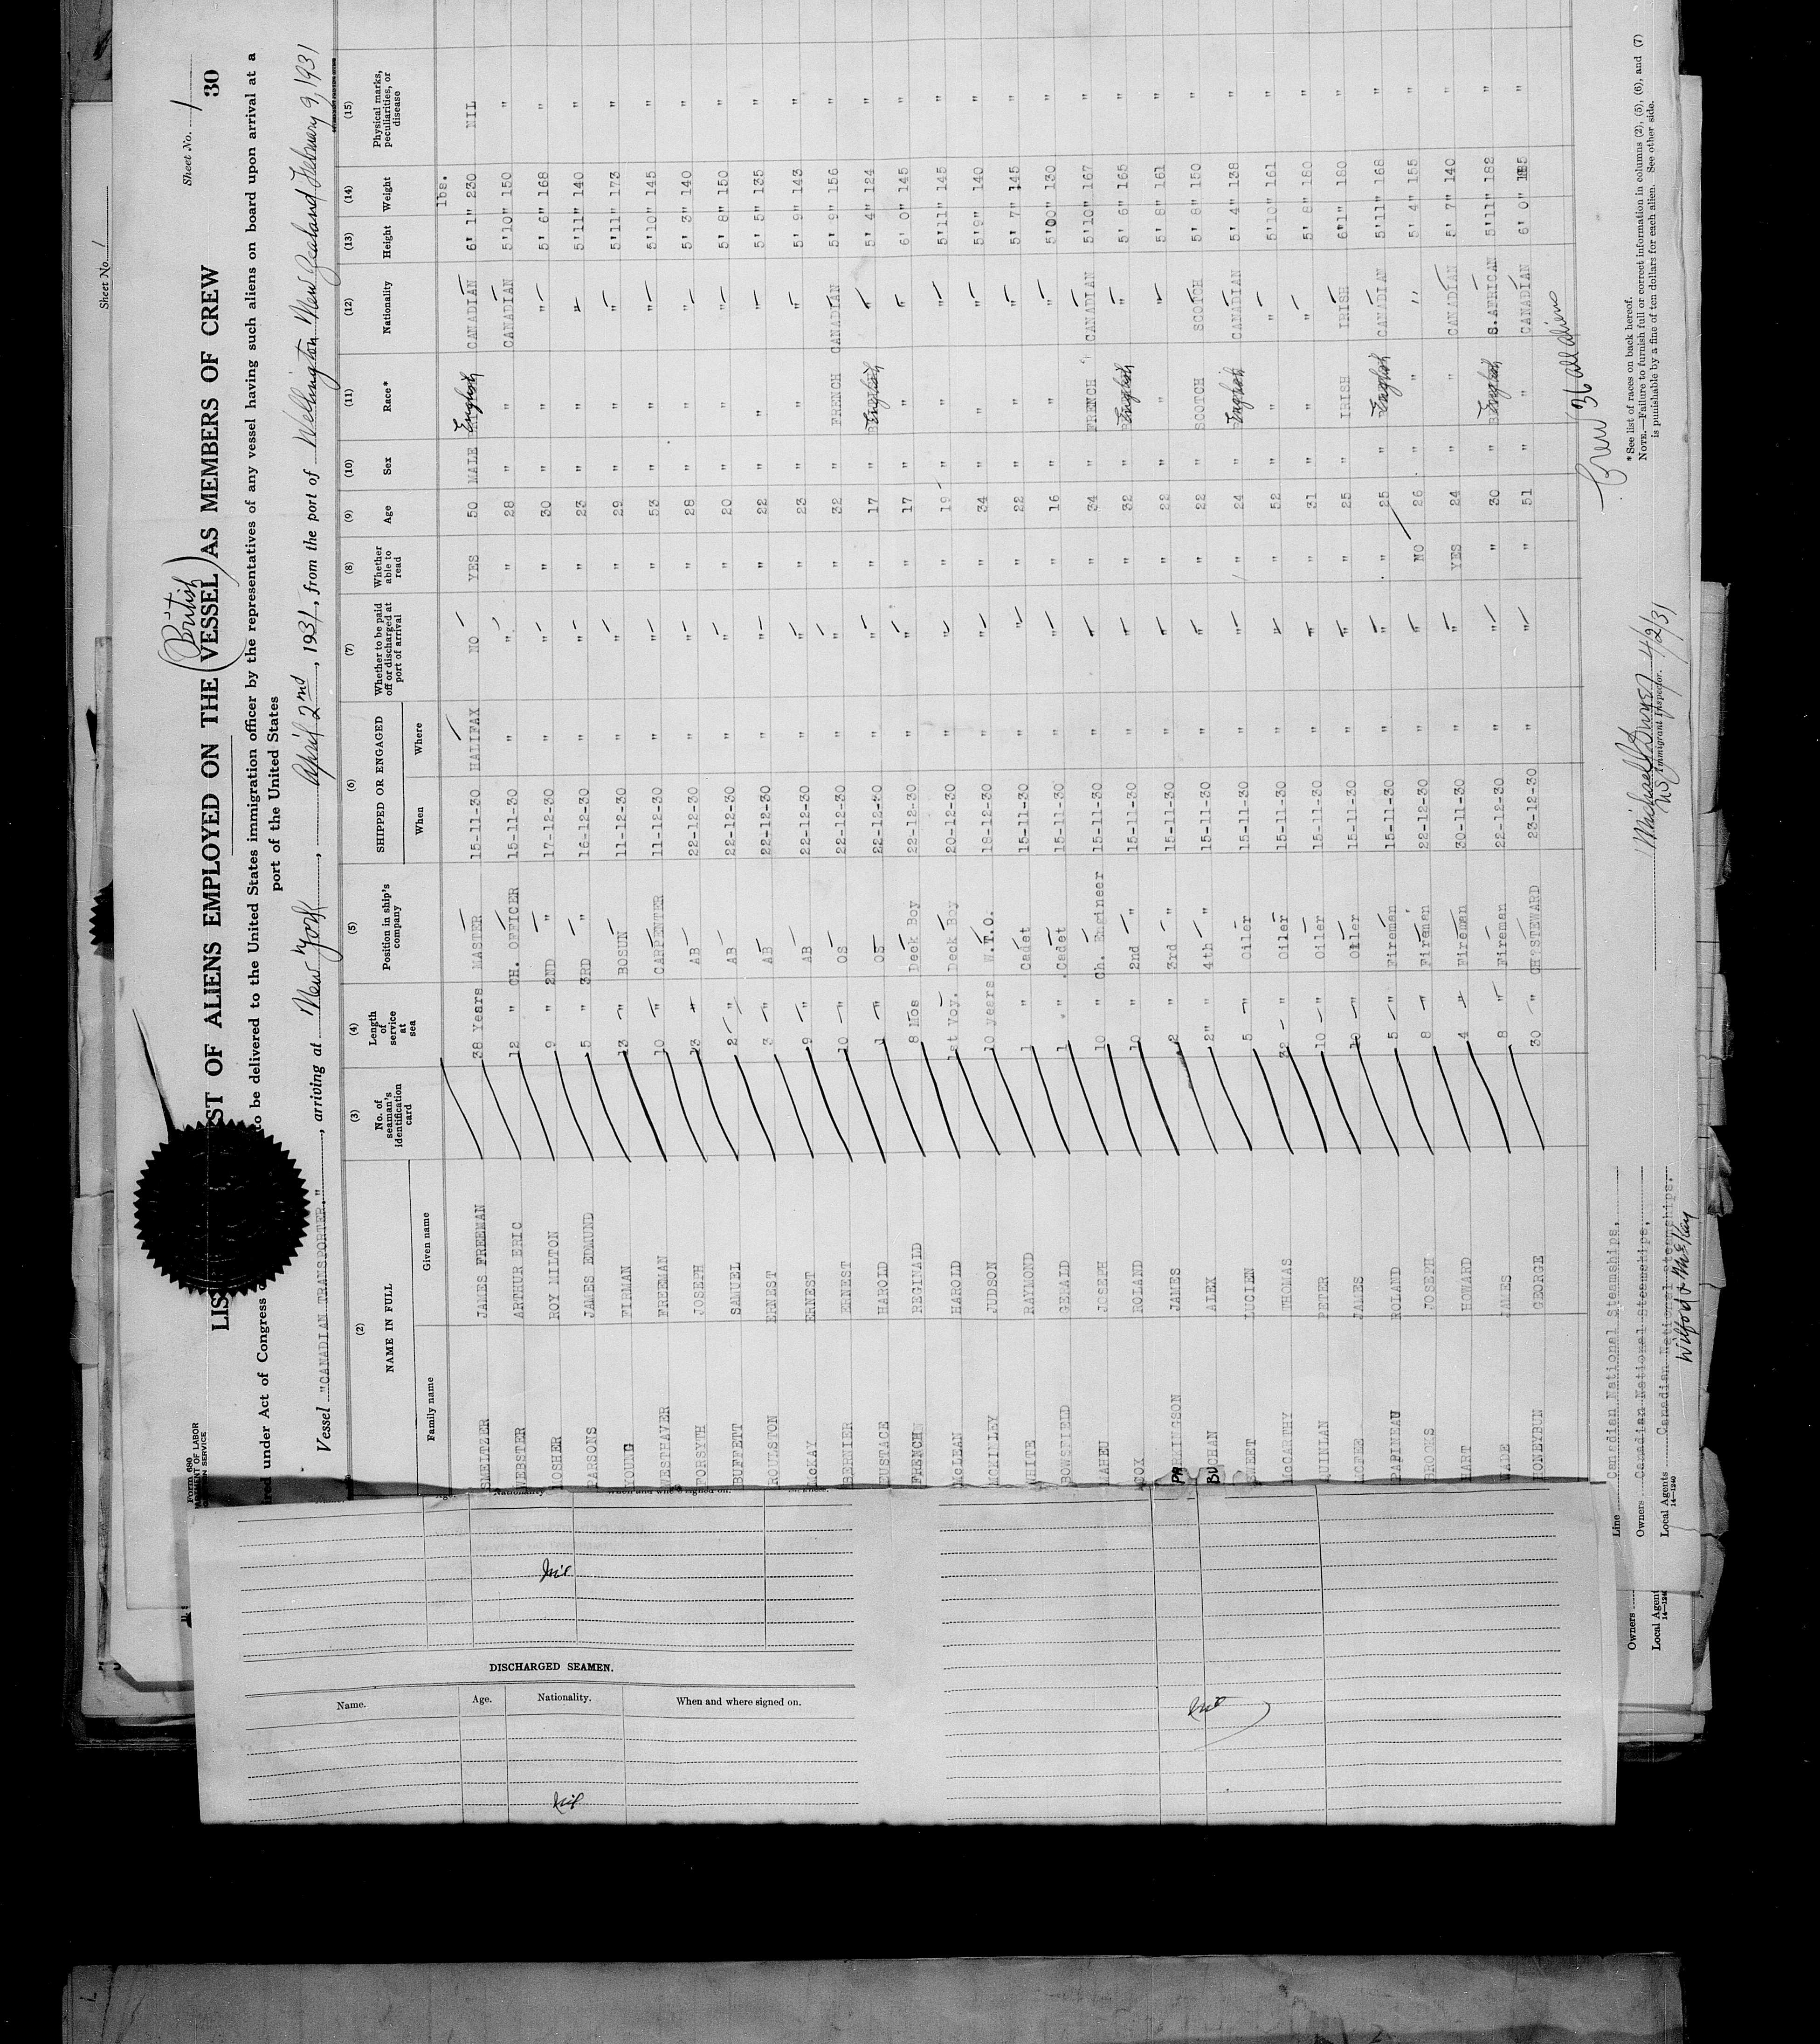 Sheet No. 1
Sheet No. 1
30
Form 680
LIST OF ALIENS EMPLOYED ON THE (British VESSEL) AS MEMBERS OF CREW
under Act of Congress to be delivered to the United States immigration officer by the representatives of any vessel having such aliens on board upon arrival at a
port of the United States
Vessel "CANADIAN TRANSPORTER.", arriving at New York, April 2nd, 1931, from the port of Wellington New Zealand February 9, 1931
(2) (3) (4) (5) (6) (7) (8) (9) (10) (11) (12) (13) (14) (15)
NAME IN FULL
Family name Given name
No. of seaman's identification card
Length of service at sea
Position in ship's company
SHIPPED OR ENGAGED
When Where
Whether to be paid off or discharged at port of arrival
Whether able to read
Age Sex Race* Nationality Height Weight
Physical marks, peculiarities, or disease
lbs.
SMELTZER JAMES FREEMAN 38 Years MASTER 15-11-30 HALIFAX NO YES 50 MALE English CANADIAN 6' 1" 230 NIL
WEBSTER ARTHUR ERIC 12 " CH. OFFICER 15-11-30 " " " 28 " " CANADIAN 5'10" 150 "
MOSHER ROY MILTON 9 " 2ND " 17-12-30 " " " 30 " " " 5' 6" 168 "
PARSONS JAMES EDMUND 5 " 3RD " 16-12-30 " " " 23 " " " 5'11" 140 "
YOUNG FIRMAN 13 " BOSUN 11-12-30 " " " 29 " " " 5'11" 173 "
WESTHAVER FREEMAN 10 " CARPENTER 11-12-30 " " " 53 " " " 5'10" 145 "
FORSYTH JOSEPH 13 " AB 22-12-30 " " " 28 " " " 5' 3" 140 "
BUFFETT SAMUEL 2 " AB 22-12-30 " " " 20 " " " 5' 8" 150 "
ROULSTON ERNEST 3 " AB 22-12-30 " " " 22 " " " 5' 5" 135 "
McKAY ERNEST 9 " AB 22-12-30 " " " 23 " " " 5' 9" 143 "
BERNIER ERNEST 10 " OS 22-12-30 " " " 32 " FRENCH CANADIAN 5' 9" 156 "
EUSTACE HAROLD 1 " OS 22-12-30 " " " 17 " English " 5' 4" 124 "
FRENCH REGINALD 8 Mos Deck Boy 22-12-30 " " " 17 " " " 6' 0" 145 "
McLEAN HAROLD 1st Voy. Deck Boy 20-12-30 " " " 19 " " " 5'11" 145 "
McKINLEY JUDSON 10 years W.T.O. 18-12-30 " " " 34 " " " 5'9" 140 "
WHITE RAYMOND 1 " Cadet 15-11-30 " " " 22 " " " 5' 7" 145 "
BOWSFIELD GERALD 1 " Cadet 15-11-30 " " " 16 " " " 5'00" 130 "
MAHEU JOSEPH 10 " Ch. Engineer 15-11-30 " " " 34 " FRENCH CANADIAN 5'10" 167 "
COX ROLAND 10 " 2nd " 15-11-30 " " " 32 " English " 5' 6" 165 "
PARKINGSON JAMES 2 " 3rd " 15-11-30 " " " 22 " " " 5' 8" 161 "
BUCHAN ALEX 2" " 4th " 15-11-30 " " " 22 " SCOTCH SCOTCH 5' 8" 150 "
SWEET LUCIEN 5 " Oiler 15-11-30 " " " 24 " English CANADIAN 5' 4" 138 "
McCARTHY THOMAS 32 " Oiler 15-11-30 " " " 52 " " " 5'10" 161 "
QUINLAN PETER 10 " Oiler 15-11-30 " " " 31 " " " 5' 8" 180 "
JAMES 10 " Oiler 15-11-30 " " " 25 " IRISH IRISH 6'1" 180 "
PAPINEAU ROLAND 5 " Fireman 15-11-30 " " " 25 " English CANADIAN 5'11" 168 "
BROOKS JOSEPH 8 " Fireman 22-12-30 " " NO 26 " " " 5' 4" 155 "
HART HOWARD 4 " Fireman 30-11-30 " " YES 24 " " CANADIAN 5' 7" 140 "
WADE JAMES 8 " Fireman 22-12-30 " " " 30 " English S.AFRICAN 5'11" 182 "
HONEYBUN GEORGE 30 " STEWARD 23-12-30 " " " 51 " " CANADIAN 6' 0" "
Crew 36 all aliens
Line Canadian National Steamships,
Owners Canadian National Steamships,
Local Agents Canadian National Steamships.
14—1240
Wilford & McKay
4/2/31
Immigrant Inspector.
* See list of races on back hereof.
NOTE.—Failure to furnish full or correct information in columns (2), (5), (6), and (7)
is punishable by a fine of ten dollars for each alien. See other side.
Owners
Local Agent
Nil
DISCHARGED SEAMEN.
Name. Age. Nationality. When and where signed on.
Nil
Nil